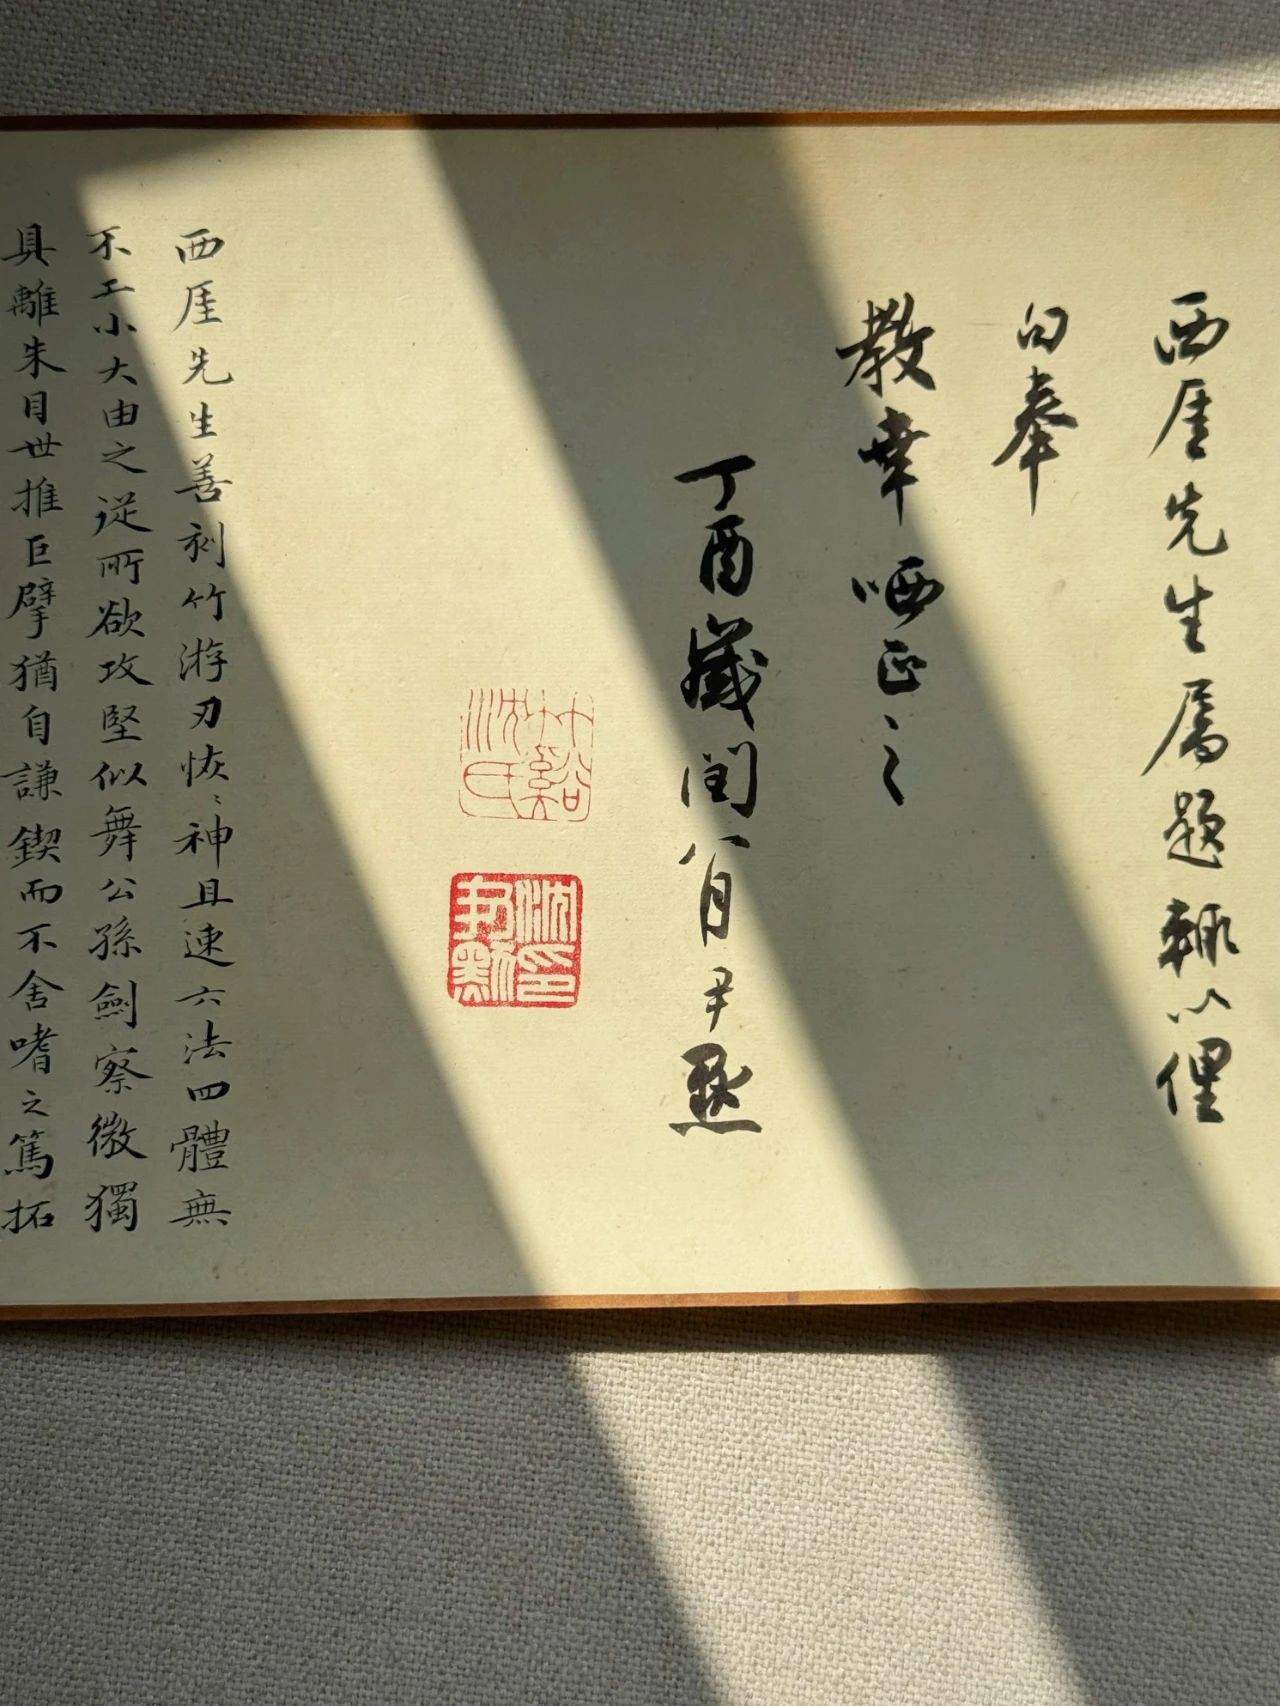 西厓先生属題輙以俚
句奉
教幸哂正之
丁酉歲閏八月尹默
竹谿沈氏
沈尹默印
西厓先生善刻竹游刃恢〻神且速六法四體無
不工小大由之從所欲攻堅似舞公孫劍察微獨
具離朱目世推巨擘猶自謙鍥而不舍嗜之篤拓